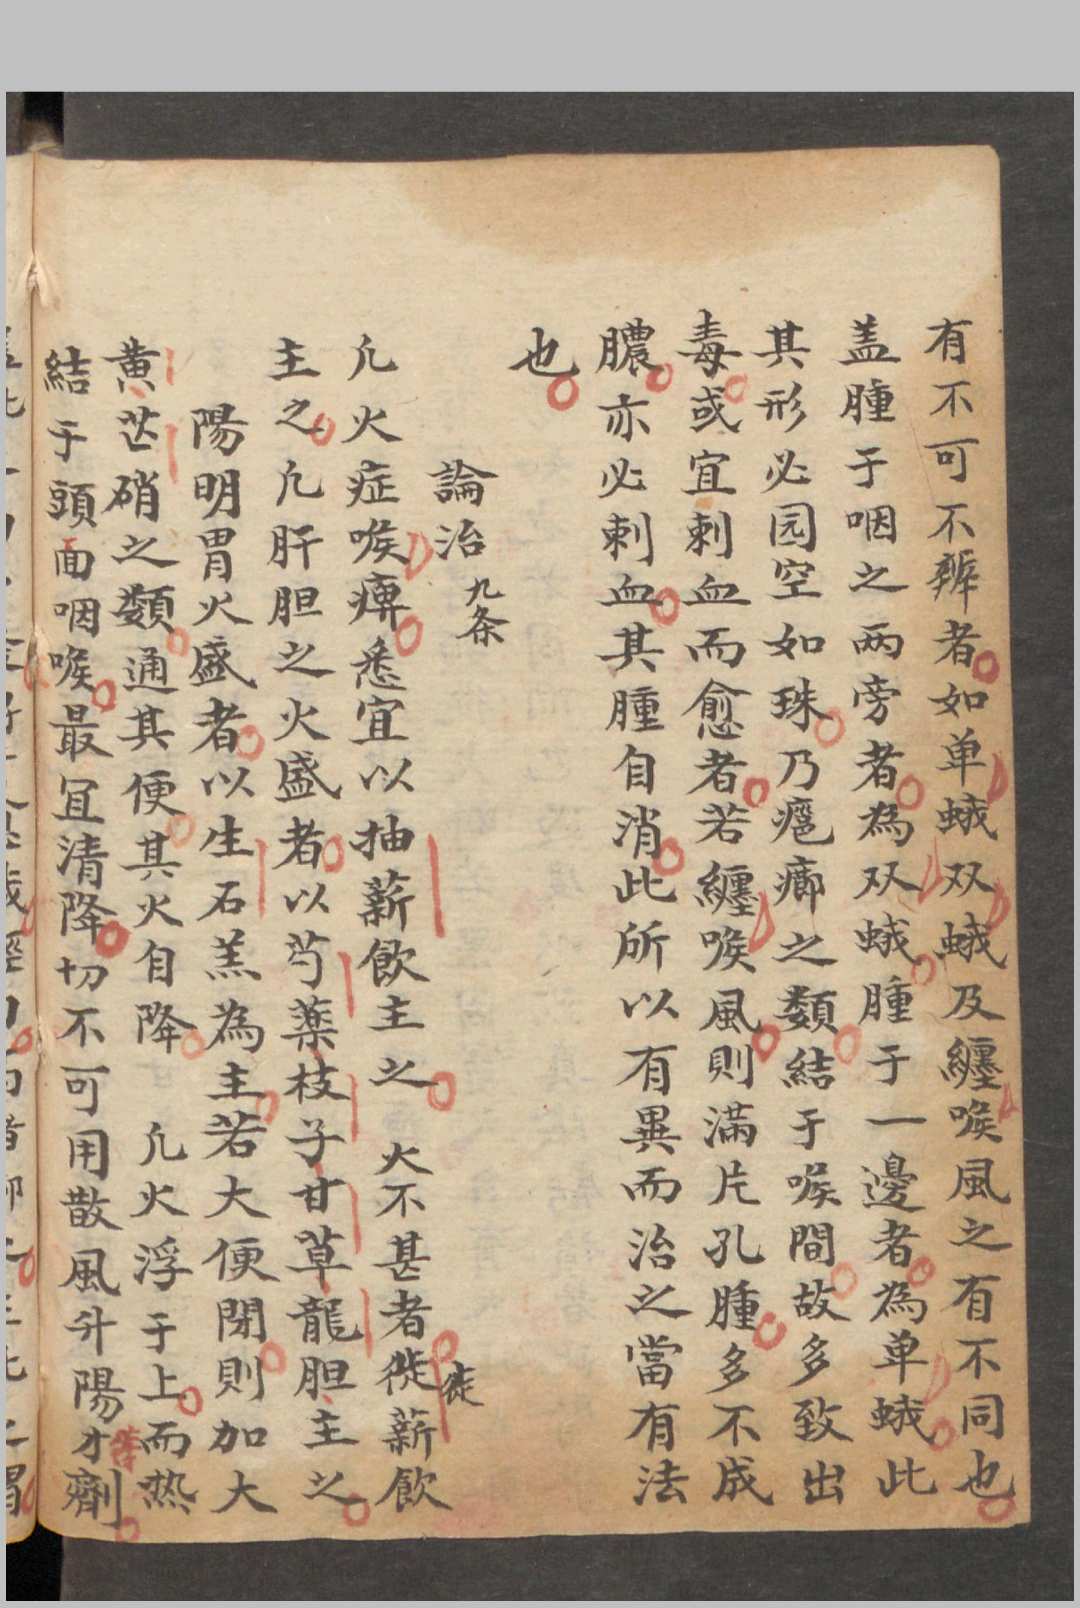 有不可不辨者如单蛾双蛾及纏喉風之有不同也
盖腫于咽之两旁者為双蛾腫于一邊者為单蛾此
其形必园空如珠乃癰癤之類結于喉間故多致出
毒或宜刺血而愈者若纏喉風則滿片孔腫多不成
膿亦必刺血其腫自消此所以有異而治之當有法
也
論治 九条
凢火症喉痺悉宜以抽薪飲主之 火不甚者徙薪飲
徙
主之凢肝胆之火盛者以芍薬枝子甘草龍胆主之
陽明胃火盛者以生石羔為主若大便閉則加大
黄芒硝之類通其便其火自降 凢火浮于上而热
結于頭面咽喉最宜清降切不可用散風升陽才劑
等